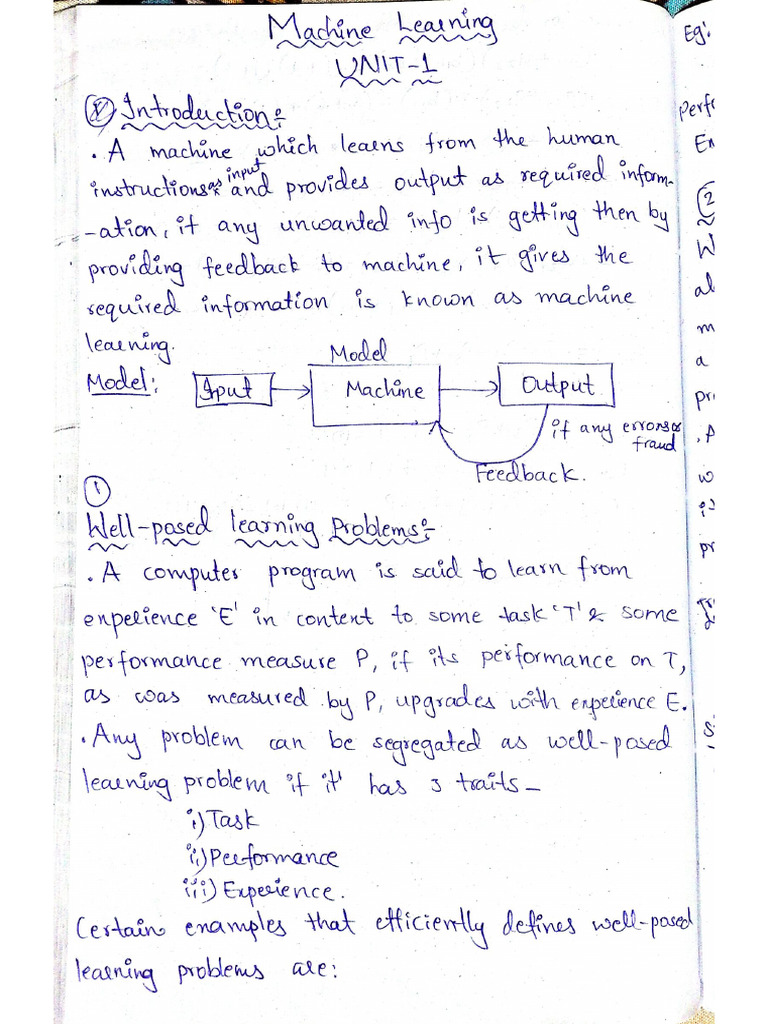 Machine Learning
UNIT-1
Introduction:-
. A machine which learns from the human
instructions as input and provides output as required inform-
-ation, if any unwanted info is getting then by
providing feedback to machine, it gives the
required information is known as machine
learning.
Model
Model: Input Machine Output
if any errors or
fraud
Feedback.
1
Well-posed learning Problems:-
. A computer program is said to learn from
experience 'E' in content to some task 'T' & some
performance measure P, if its performance on T,
as was measured by P, upgrades with experience E.
. Any problem can be segregated as well-posed
learning problem if it has 3 traits -
i) Task
ii) Performance
iii) Experience.
Certain examples that efficiently defines well-posed
learning problems are:
Eg:
2